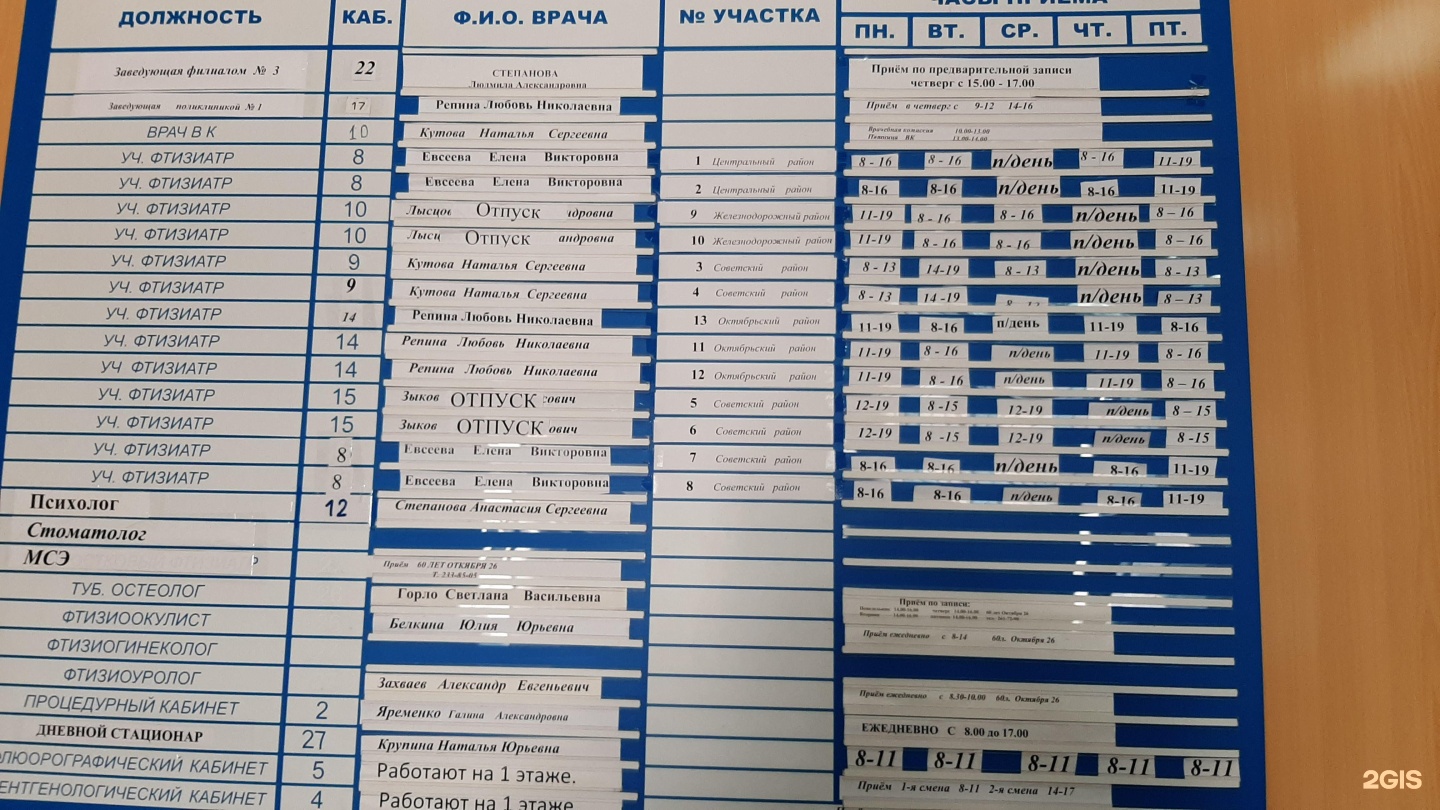 ДОЛЖНОСТЬ КАБ. Ф.И.О. ВРАЧА № УЧАСТКА ЧАСЫ ПРИЕМА
ПН. ВТ. СР. ЧТ. ПТ.
Заведующая филиалом № 3 22 СТЕПАНОВА Людмила Александровна Приём по предварительной записи
четверг с 15.00 - 17.00
Заведующая поликлиникой № 1 17 Репина Любовь Николаевна Приём в четверг с 9-12 14-16
ВРАЧ В К 10 Кутова Наталья Сергеевна Врачебная комиссия 10.00-13.00
Пятница ВК 13.00-14.00
УЧ. ФТИЗИАТР 8 Евсеева Елена Викторовна 1 Центральный район 8 - 16 8 - 16 п/день 8 - 16 11-19
УЧ. ФТИЗИАТР 8 Евсеева Елена Викторовна 2 Центральный район 8-16 8-16 п/день 8-16 11-19
УЧ. ФТИЗИАТР 10 Лысцов Отпуск ндровна 9 Железнодорожный район 11-19 8 - 16 8 - 16 п/день 8 – 16
УЧ. ФТИЗИАТР 10 Лысц Отпуск андровна 10 Железнодорожный район 11-19 8 - 16 8 - 16 п/день 8 – 16
УЧ. ФТИЗИАТР 9 Кутова Наталья Сергеевна 3 Советский район 8 - 13 14-19 8 - 13 п/день 8 - 13
УЧ. ФТИЗИАТР 9 Кутова Наталья Сергеевна 4 Советский район 8 - 13 14 -19 п/день 8 – 13
УЧ. ФТИЗИАТР 14 Репина Любовь Николаевна 13 Октябрьский район 11-19 8-16 п/день 11-19 8-16
УЧ. ФТИЗИАТР 14 Репина Любовь Николаевна 11 Октябрьский район 11-19 8 - 16 п/день 11 -19 8 - 16
УЧ. ФТИЗИАТР 14 Репина Любовь Николаевна 12 Октябрьский район 11-19 8 - 16 п/день 11 -19 8 – 16
УЧ. ФТИЗИАТР 15 Зыков ОТПУСК ович 5 Советский район 12-19 8 -15 12-19 п/день 8 – 15
УЧ. ФТИЗИАТР 15 Зыков ОТПУСК ович 6 Советский район 12-19 8 -15 12-19 п/день 8 -15
УЧ. ФТИЗИАТР 8 Евсеева Елена Викторовна 7 Советский район 8-16 8-16 п/день 8-16 11-19
УЧ. ФТИЗИАТР 8 Евсеева Елена Викторовна 8 Советский район 8-16 8-16 п/день 8-16 11-19
Психолог 12 Степанова Анастасия Сергеевна
Стоматолог
МСЭ Приём 60 ЛЕТ ОТКЯБРЯ 26
Т. 233-85-05
ТУБ. ОСТЕОЛОГ Горло Светлана Васильевна Приём по записи:
ФТИЗИООКУЛИСТ Белкина Юлия Юрьевна Приём ежедневно с 8-14 60л. Октября 26
ФТИЗИОГИНЕКОЛОГ
ФТИЗИОУРОЛОГ Захваев Александр Евгеньевич Приём ежедневно с 8.30-10.00 60л. Октября 26
ПРОЦЕДУРНЫЙ КАБИНЕТ 2 Яременко Галина Александровна ЕЖЕДНЕВНО С 8.00 до 17.00
ДНЕВНОЙ СТАЦИОНАР 27 Крупина Наталья Юрьевна 8-11 8-11 8-11 8-11 8-11
ЛЮОРОГРАФИЧЕСКИЙ КАБИНЕТ 5 Работают на 1 этаже. Приём 1-я смена 8-11 2-я смена 14-17
ЕНТГЕНОЛОГИЧЕСКИЙ КАБИНЕТ 4 Работают на 1 этаже
2GIS